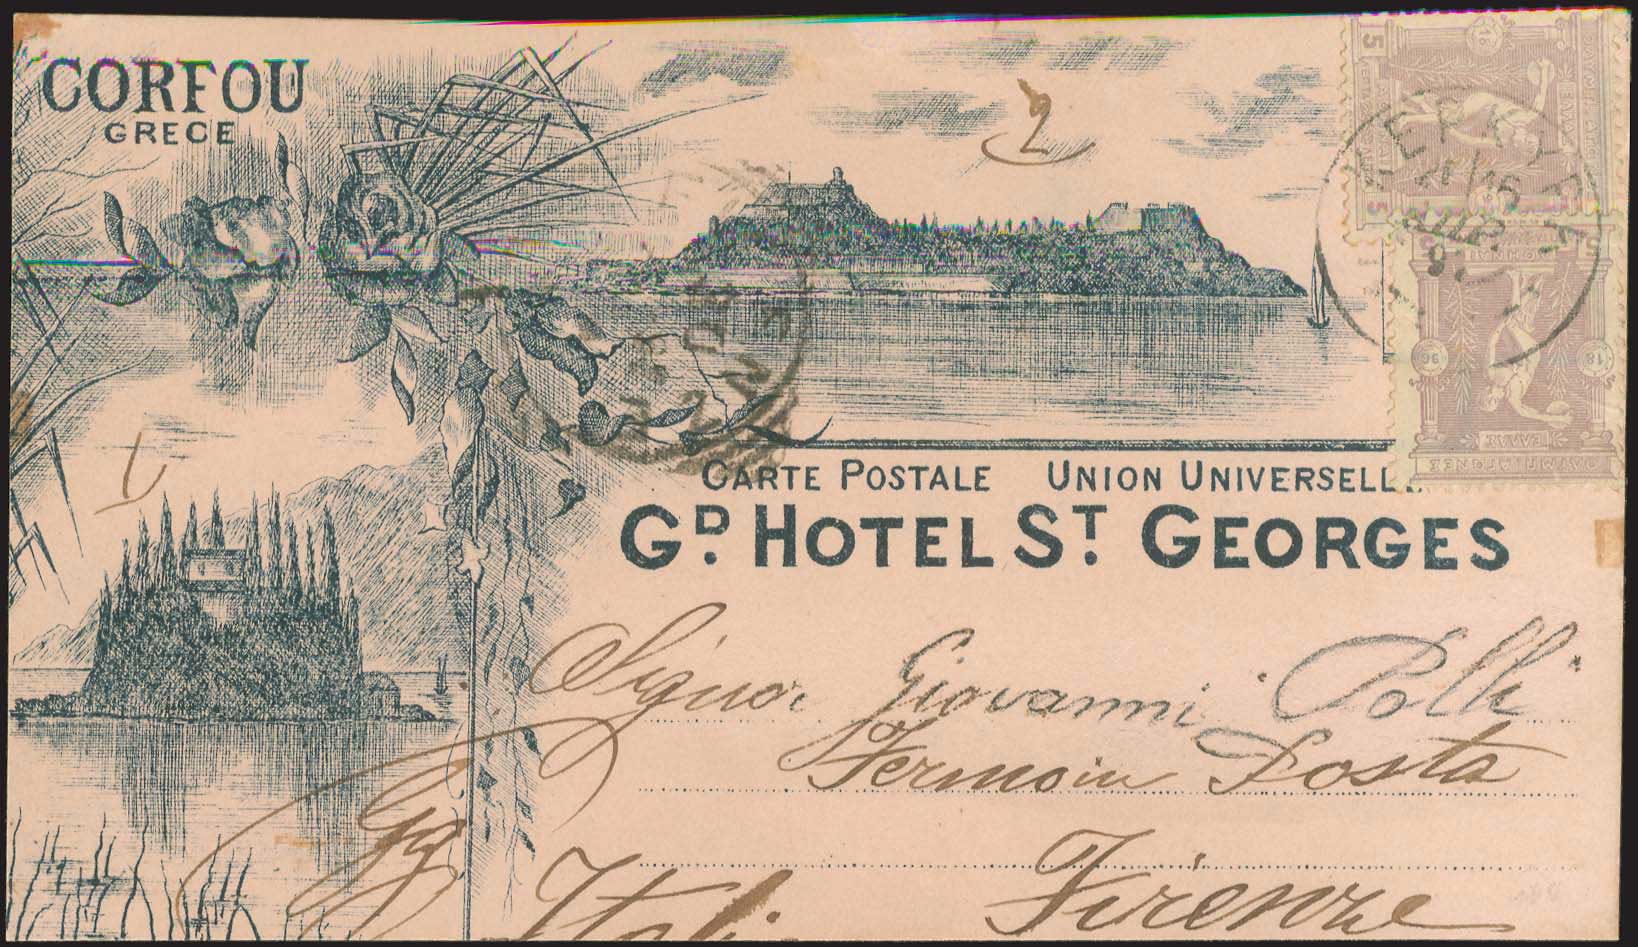 CORFOU
GRECE
2
CARTE POSTALE UNION UNIVERSELL
GD. HOTEL ST GEORGES
1
Signor Giovanni Polli
Fermo in Posta
Firenze
Itali